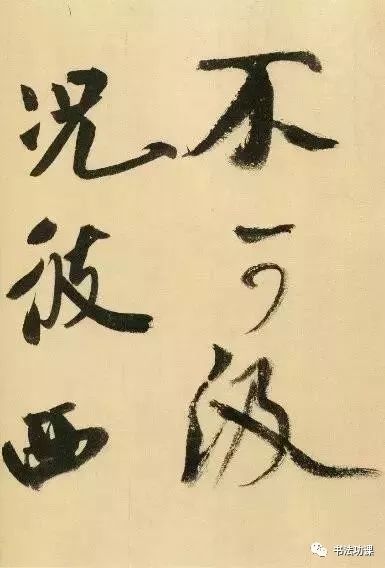 不可汲
况彼西
书法功课